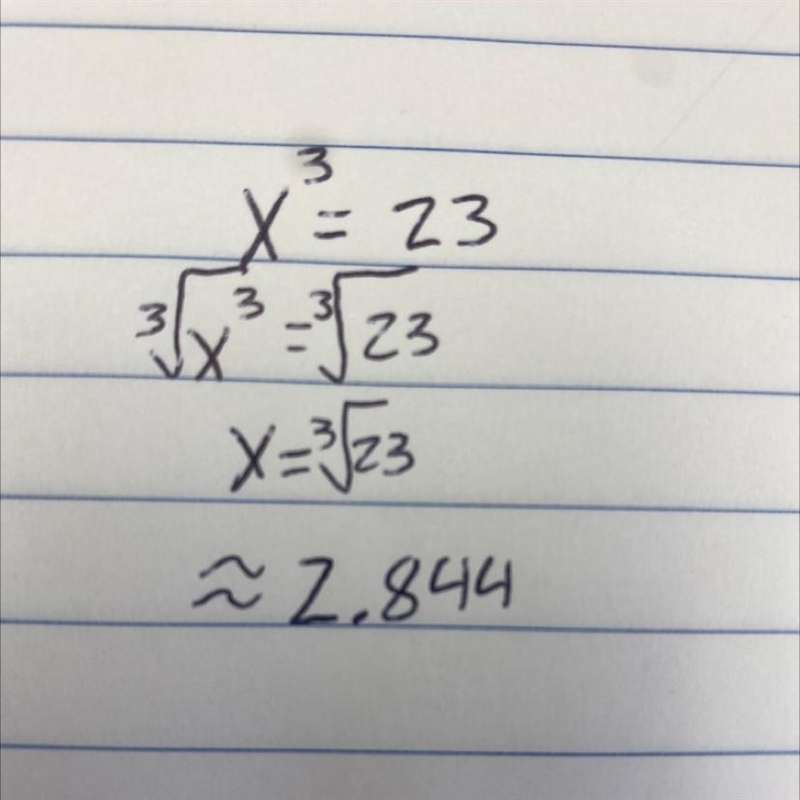 x³ = 23
∛x³ = ∛23
x = ∛23
≈ 2.844